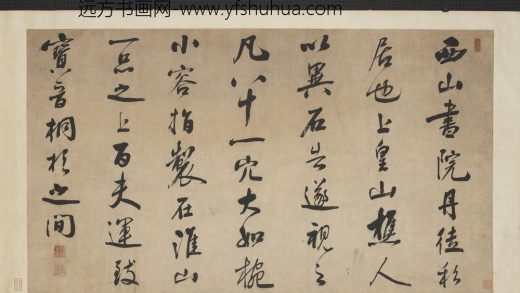 远方书画网-www.yfshuhua.com
西山書院丹徒私
居也上皇山樵人
以異石告遂視之
凡八十一穴大如椀
小容指製在淮山
一品之上百夫運致
寶晉桐杉之間